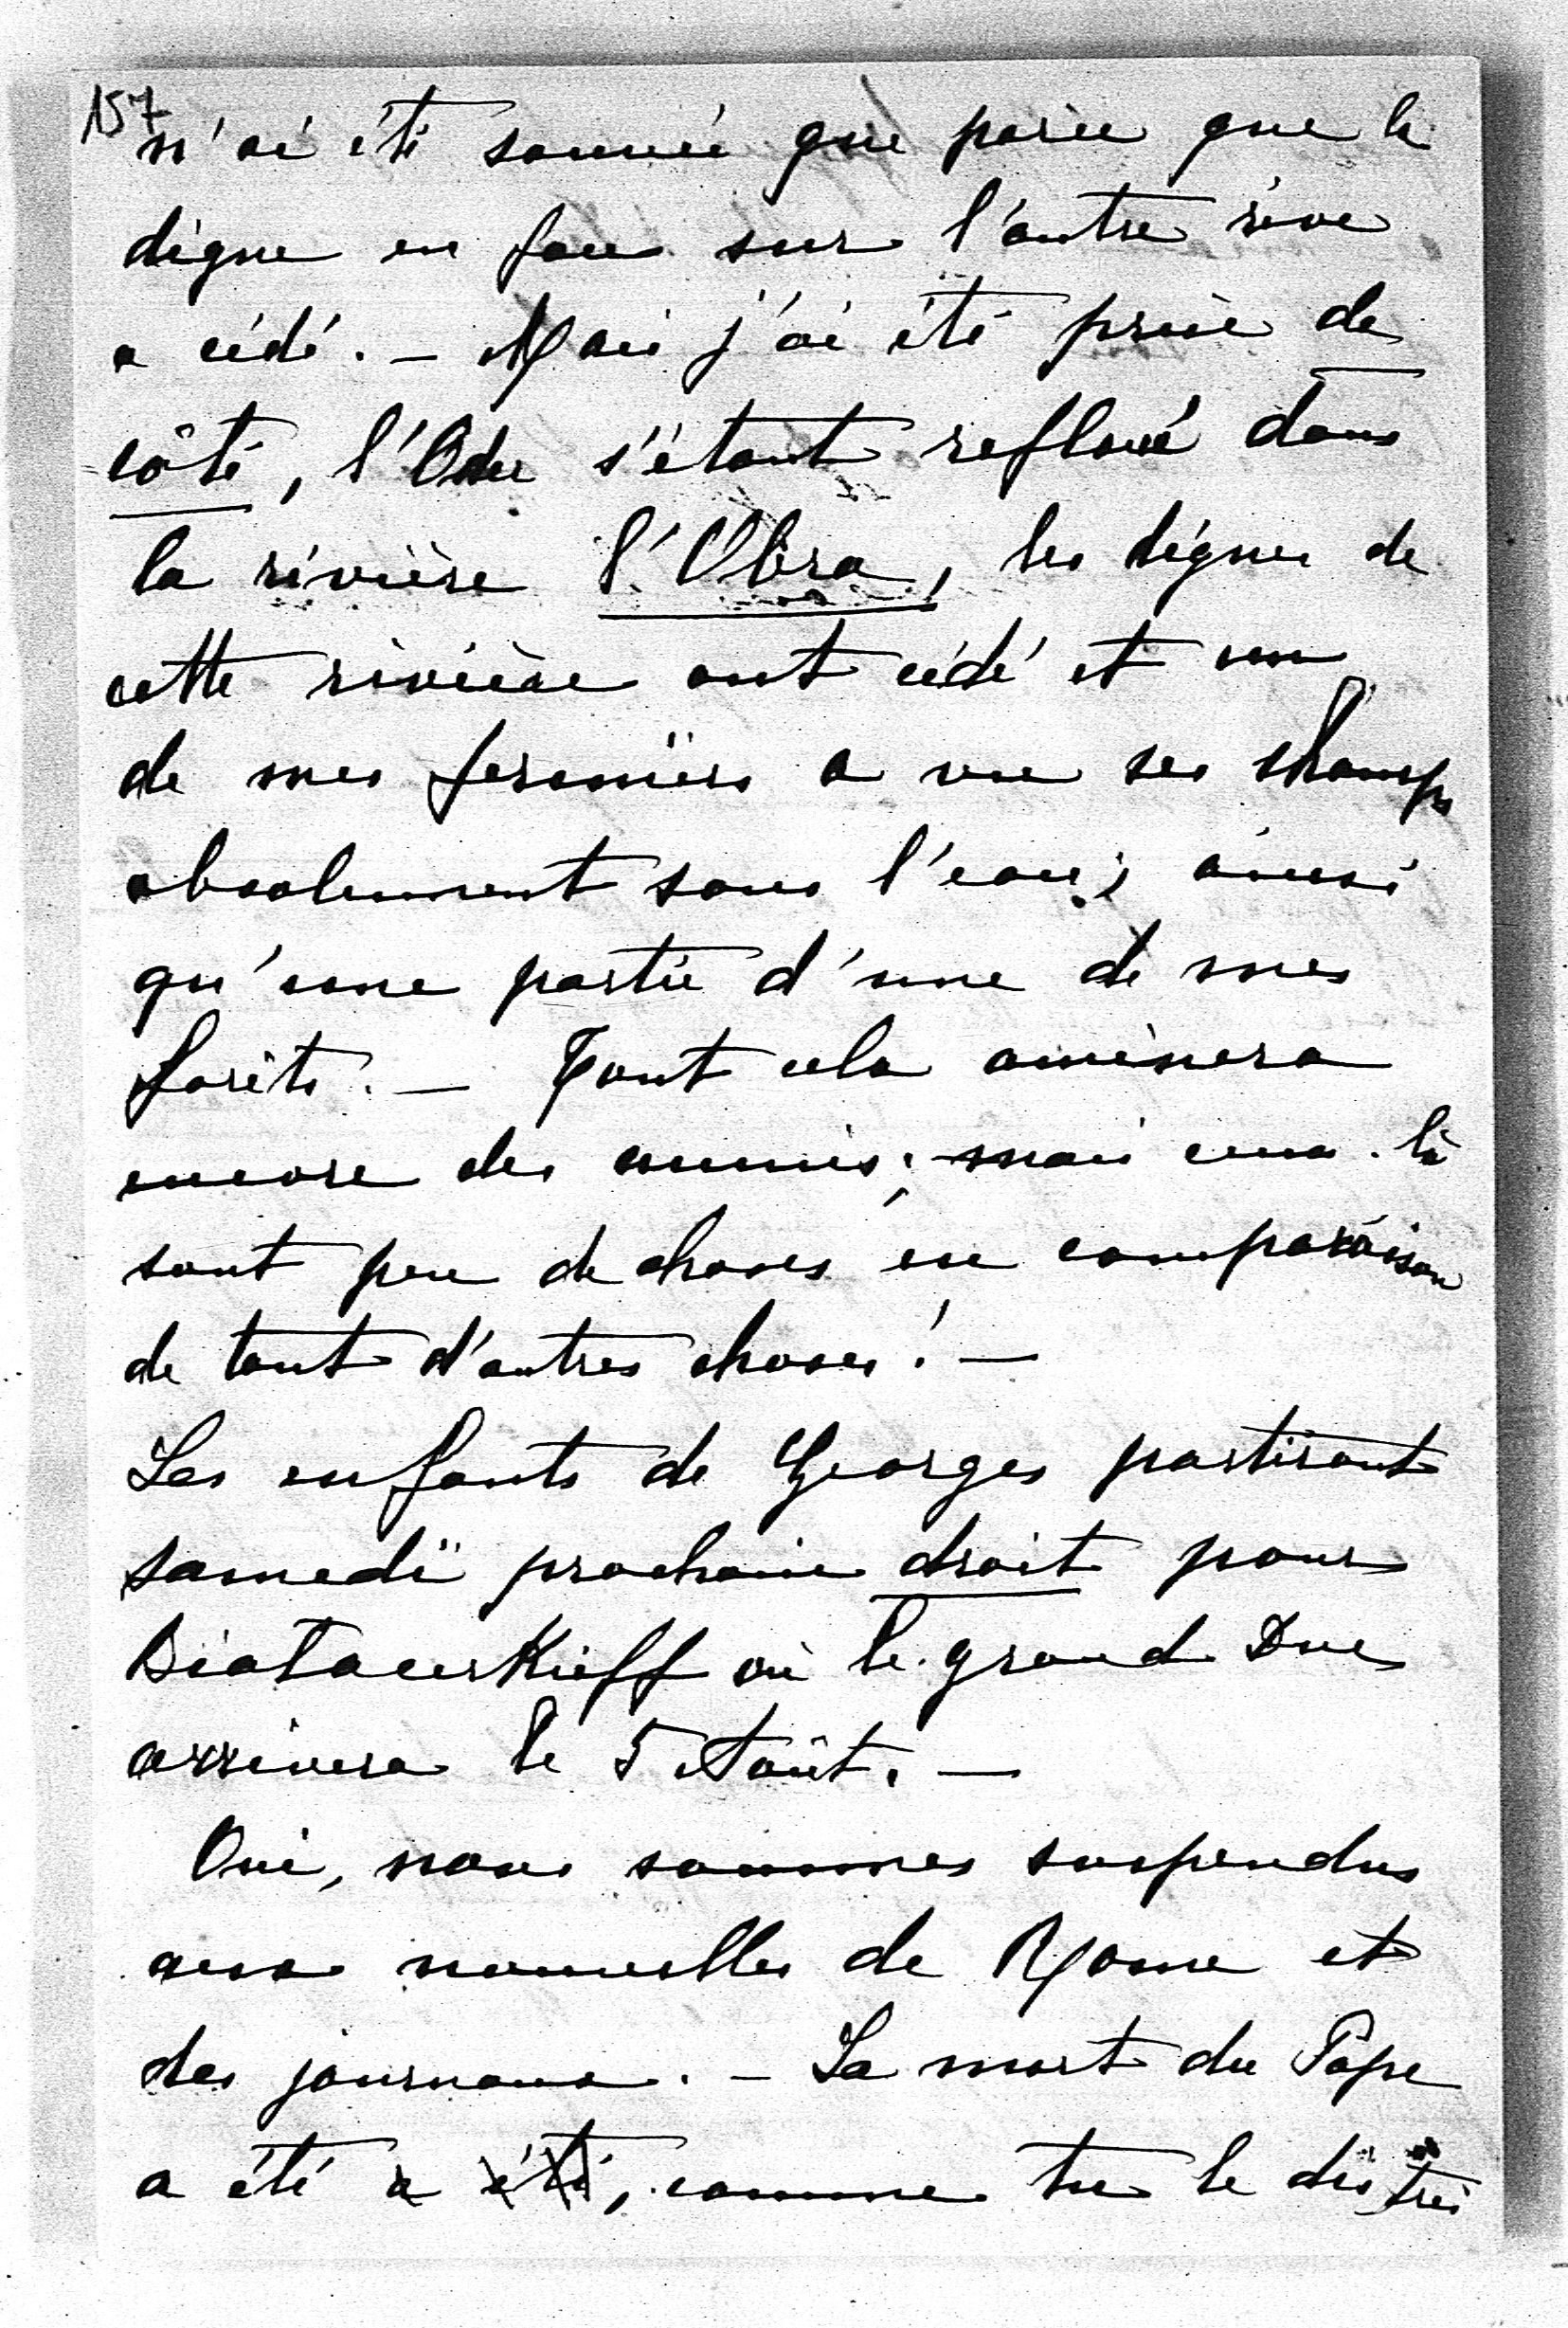 157
n'ai été sauvée que parce que la
digue en face sur l'autre rive
a cédé. — Mais j'ai été prise de
côté, l'Oder s'étant refloué dans
la rivière l'Obra, les digues de
cette rivière ont cédé et un
de mes fermiers a vu ses champs
absolument sous l'eau; ainsi
qu'une partie d'une de mes
forêts. — Tout cela amènera
encore des ennuis; mais ceux-là
sont peu de choses en comparaison
de tant d'autres choses! —
Les enfants de Georges partiront
samedi prochain droit pour
où le grand Duc
arrivera le 5 Août. —
Oui, nous sommes suspendus
aux nouvelles de Rome et
des journaux. — La mort du Pape
a été a été, comme tu le dis très